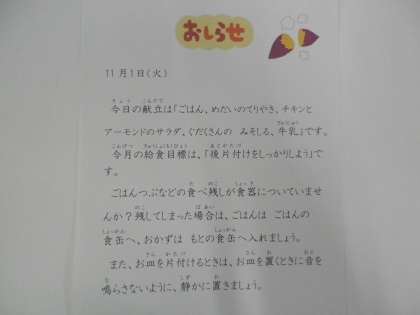 おしらせ
11月1日(火)
今日の献立は「ごはん、めだいのてりやき、チキンと
アーモンドのサラダ、ぐだくさんの みそしる、牛乳」です。
今月の給食目標は、「後片付けをしっかりしよう」で
す。
ごはんつぶなどの食べ残しが食器についていませ
んか?残してしまった場合は、ごはんは ごはんの
食缶へ、おかずは もとの食缶へ入れましょう。
また、お皿を片付けるときは、お皿を置くときに音を
鳴らさないように、静かに置きましょう。